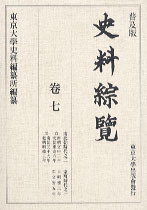 普及版
東京大學史料編纂所編纂
史料綜覽
卷七
東京大學出版會發行